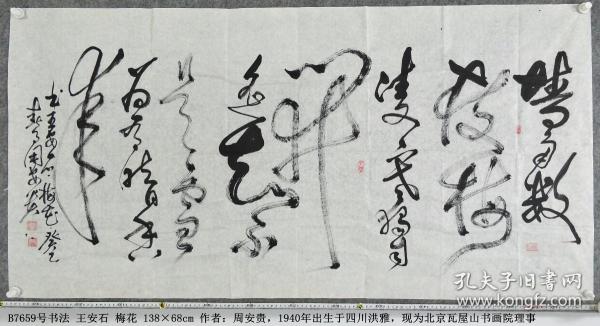 墙角数
枝梅
凌寒独自
开
遥知不
是雪
为有暗香
来
书王安石梅花癸巳
春月周安贵
孔夫子旧书网
B7659号书法 王安石 梅花 138×68cm 作者：周安贵，1940年出生于四川洪雅，现为北京瓦屋山书画院理事